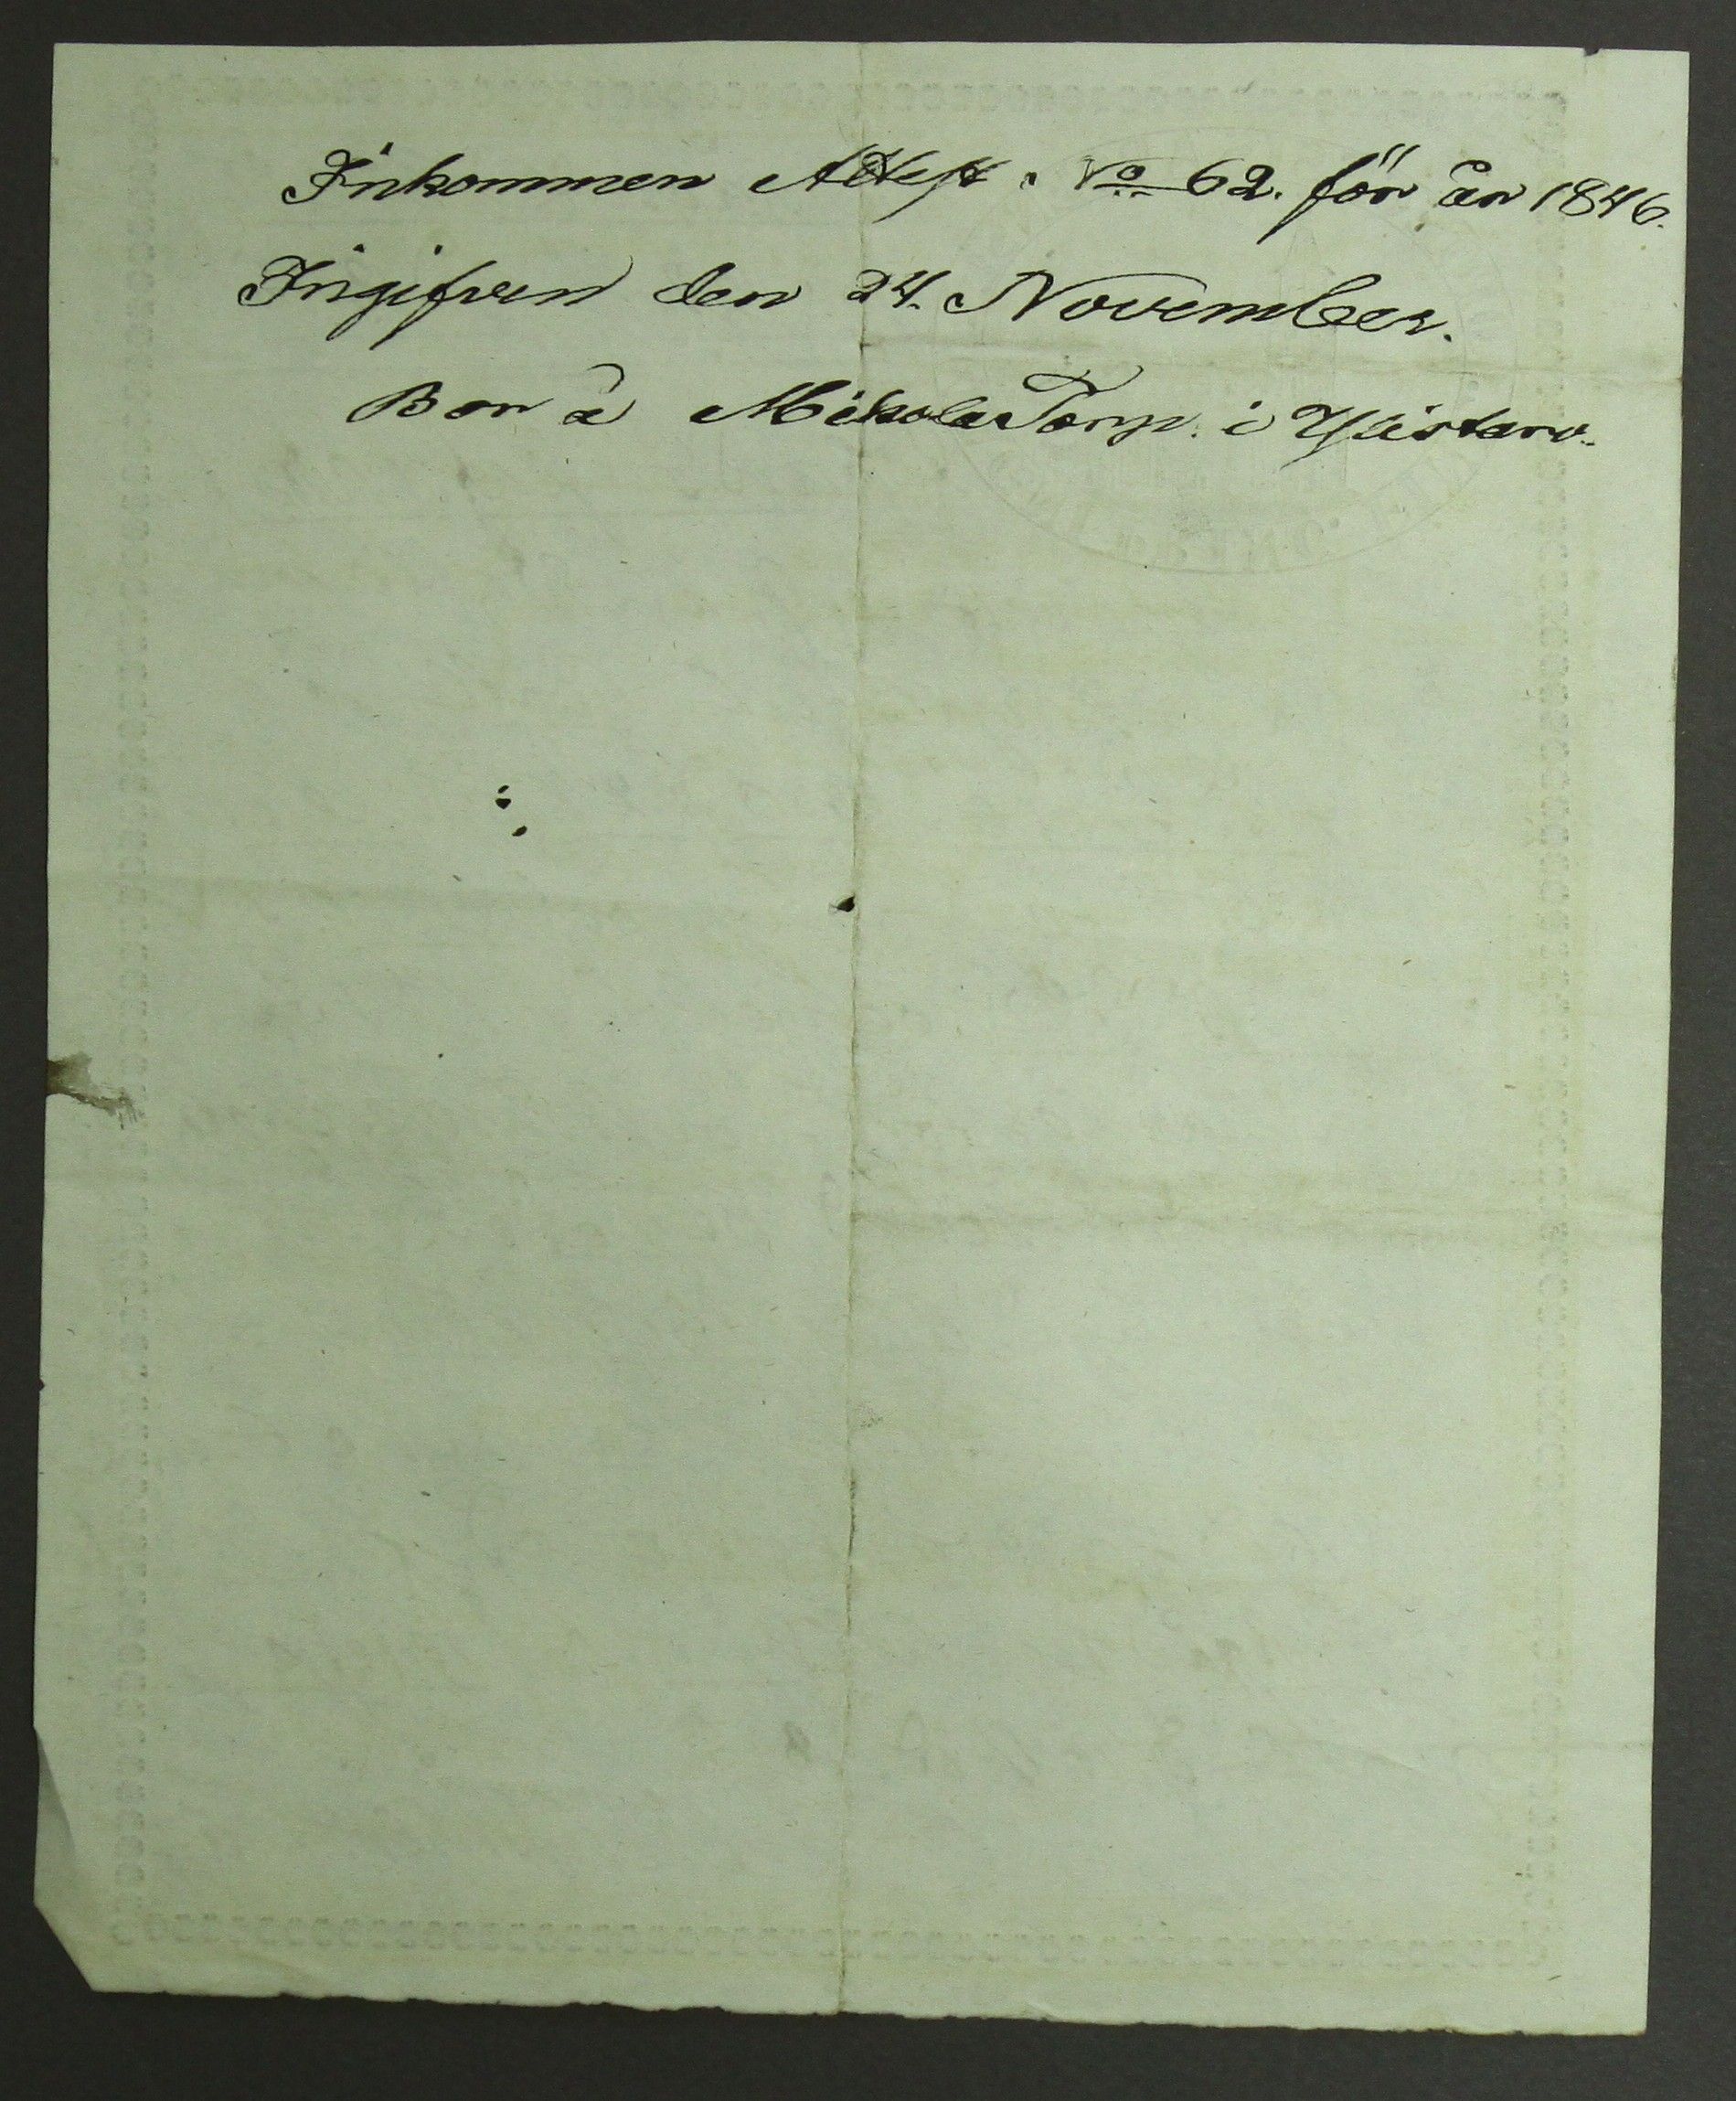 Inkommen Attest. No 62. för år 1846.
Ingifven den 24. November.
Bor å Mikola Torp. i Ylistaro.